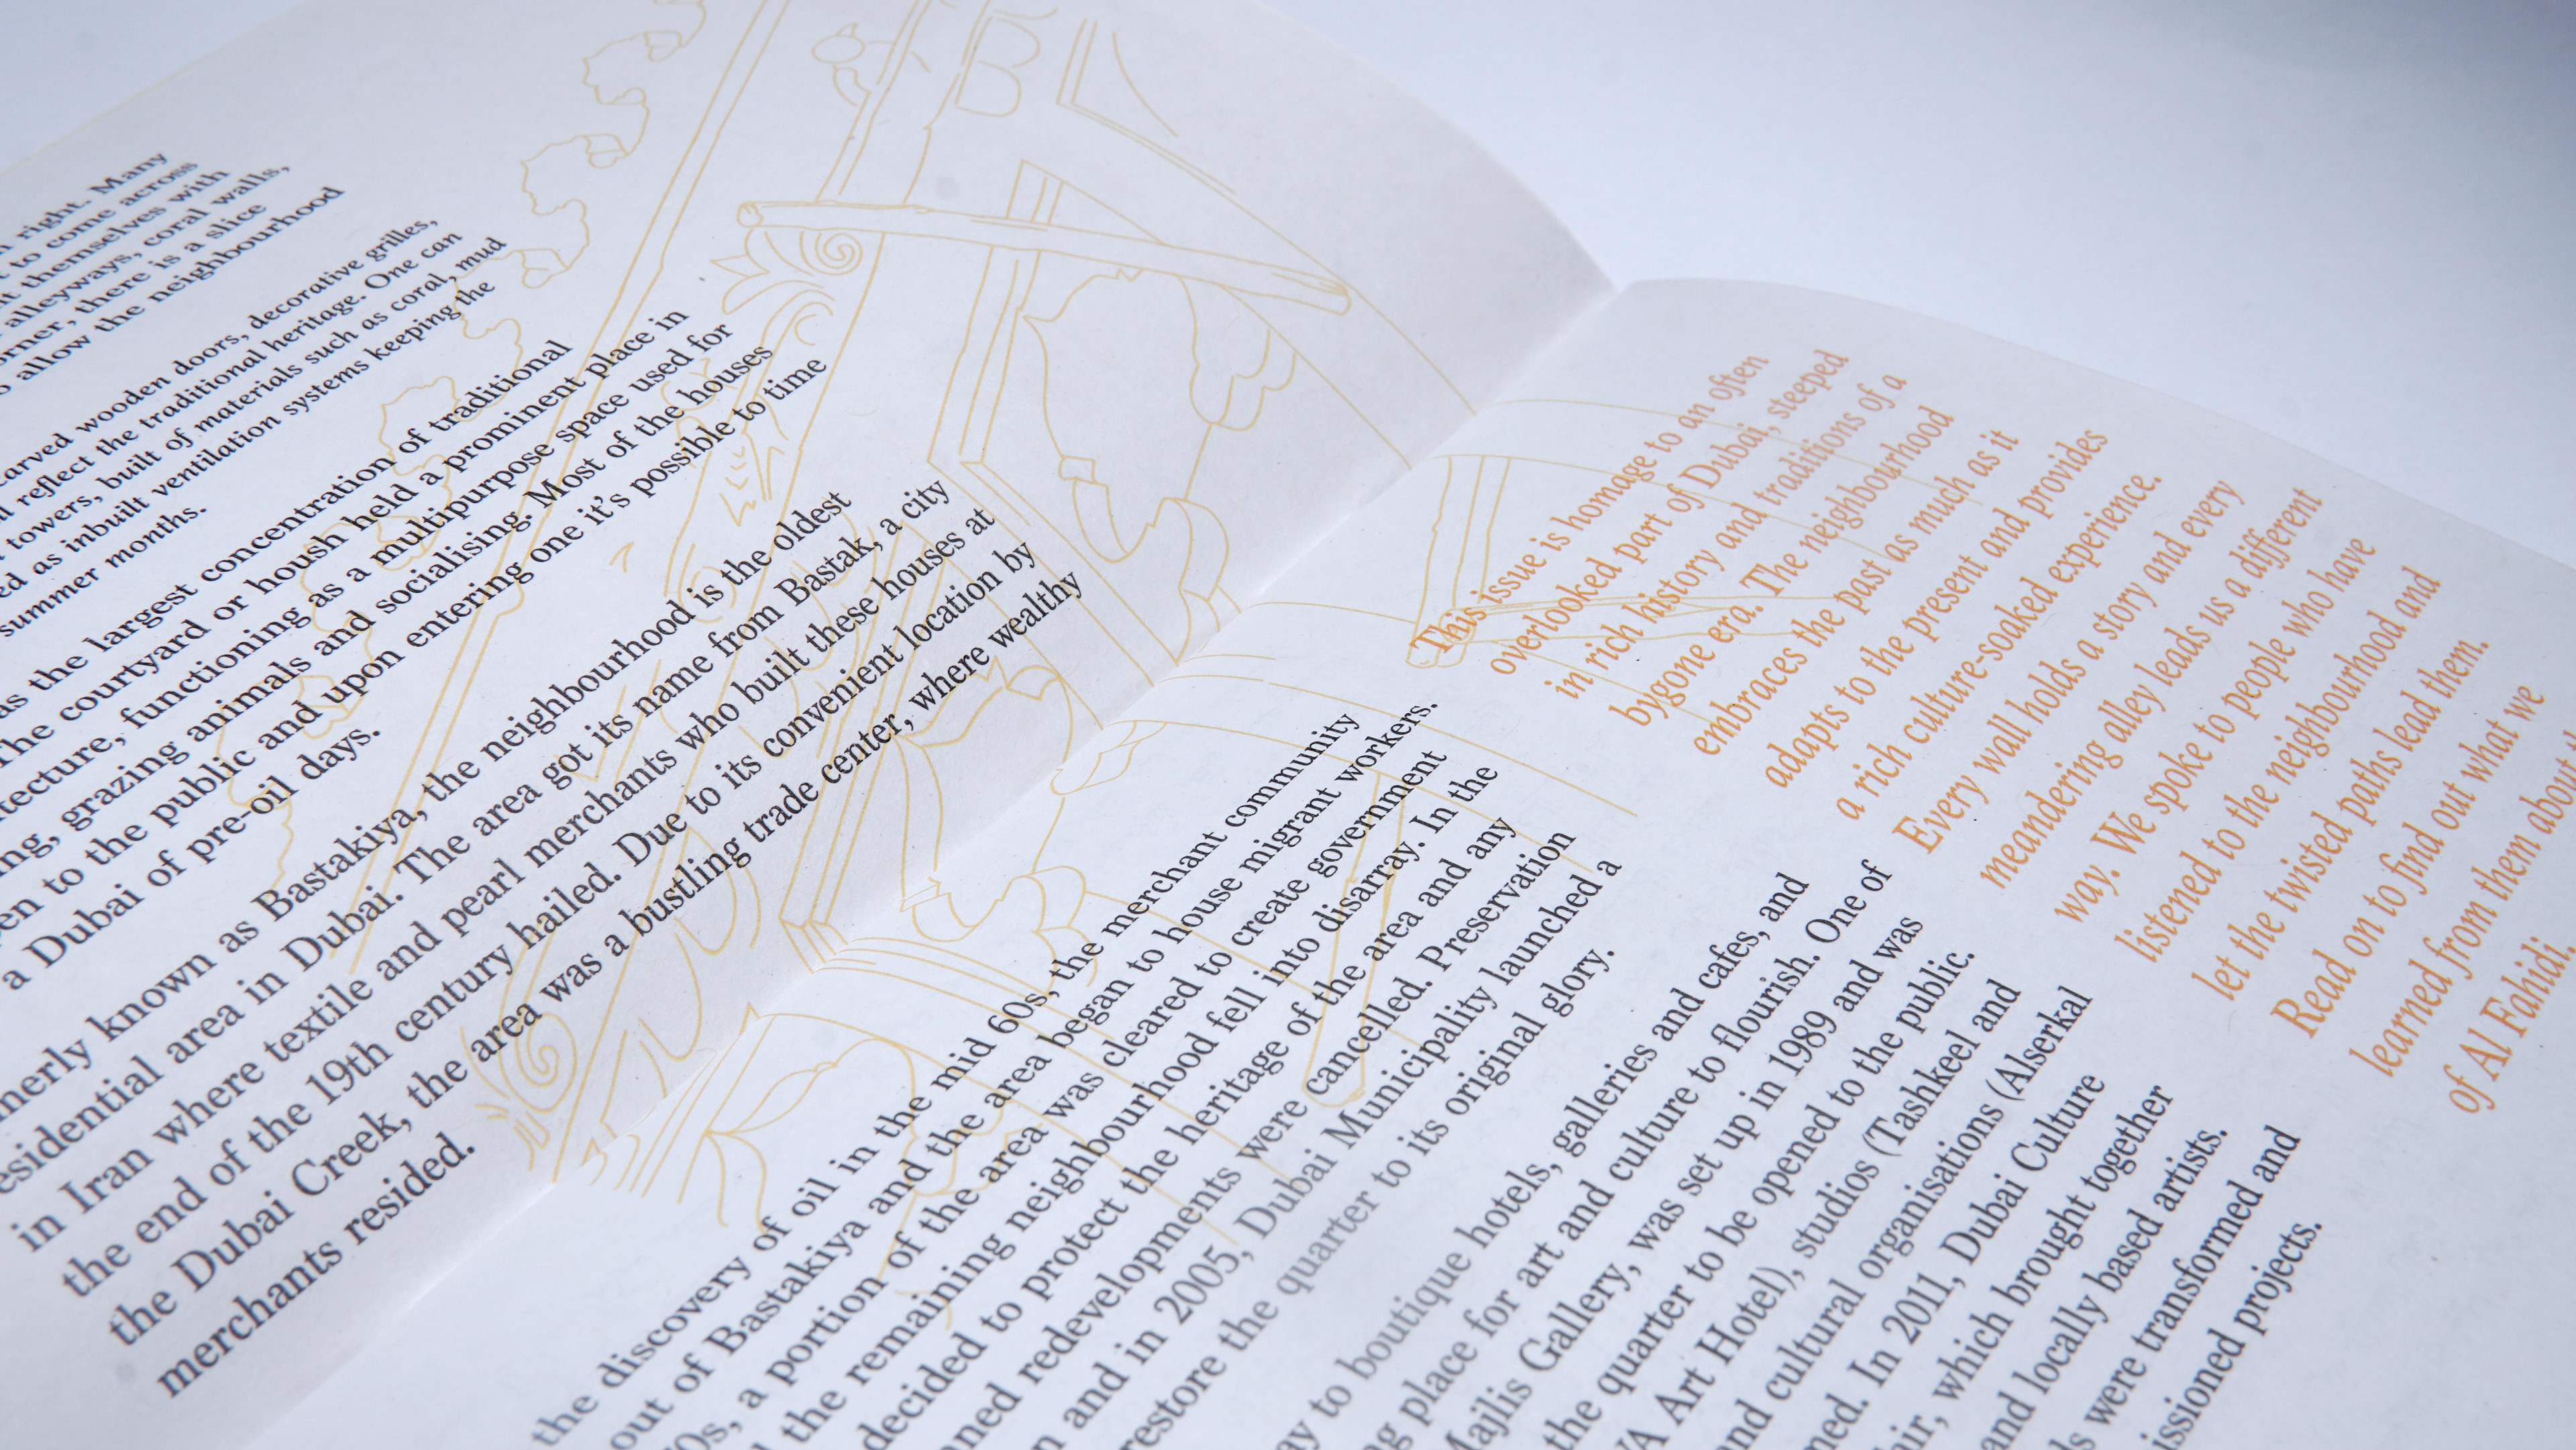 right. Many
to come across
themselves with
alleyways, coral walls,
there is a slice
allow the neighbourhood
wooden doors, decorative grilles,
reflect the traditional heritage. One can
towers, built of materials such as coral, mud
as inbuilt ventilation systems keeping the
summer months.
as the largest concentration of traditional
The courtyard or housh held a prominent place in
functioning as a multipurpose space used for
grazing animals and socialising. Most of the houses
to the public and upon entering one it's possible to time
a Dubai of pre-oil days.
known as Bastakiya, the neighbourhood is the oldest
area in Dubai. The area got its name from Bastak, a city
in Iran where textile and pearl merchants who built these houses at
the end of the 19th century hailed. Due to its convenient location by
the Dubai Creek, the area was a bustling trade center, where wealthy
merchants resided.
the discovery of oil in the mid 60s, the merchant community
out of Bastakiya and the area began to house migrant workers.
a portion of the area was cleared to create government
the remaining neighbourhood fell into disarray. In the
decided to protect the heritage of the area and any
redevelopments were cancelled. Preservation
and in 2005, Dubai Municipality launched a
restore the quarter to its original glory.
to boutique hotels, galleries and cafes, and
place for art and culture to flourish. One of
Majlis Gallery, was set up in 1989 and was
the quarter to be opened to the public.
Art Hotel), studios (Tashkeel and
and cultural organisations (Alserkal
In 2011, Dubai Culture
which brought together
and locally based artists.
were transformed and
projects.
This issue is homage to an often
overlooked part of Dubai, steeped
in rich history and traditions of a
bygone era. The neighbourhood
embraces the past as much as it
adapts to the present and provides
a rich culture-soaked experience.
Every wall holds a story and every
meandering alley leads us a different
way. We spoke to people who have
listened to the neighbourhood and
let the twisted paths lead them.
Read on to find out what we
learned from them about
of Al Fahidi.